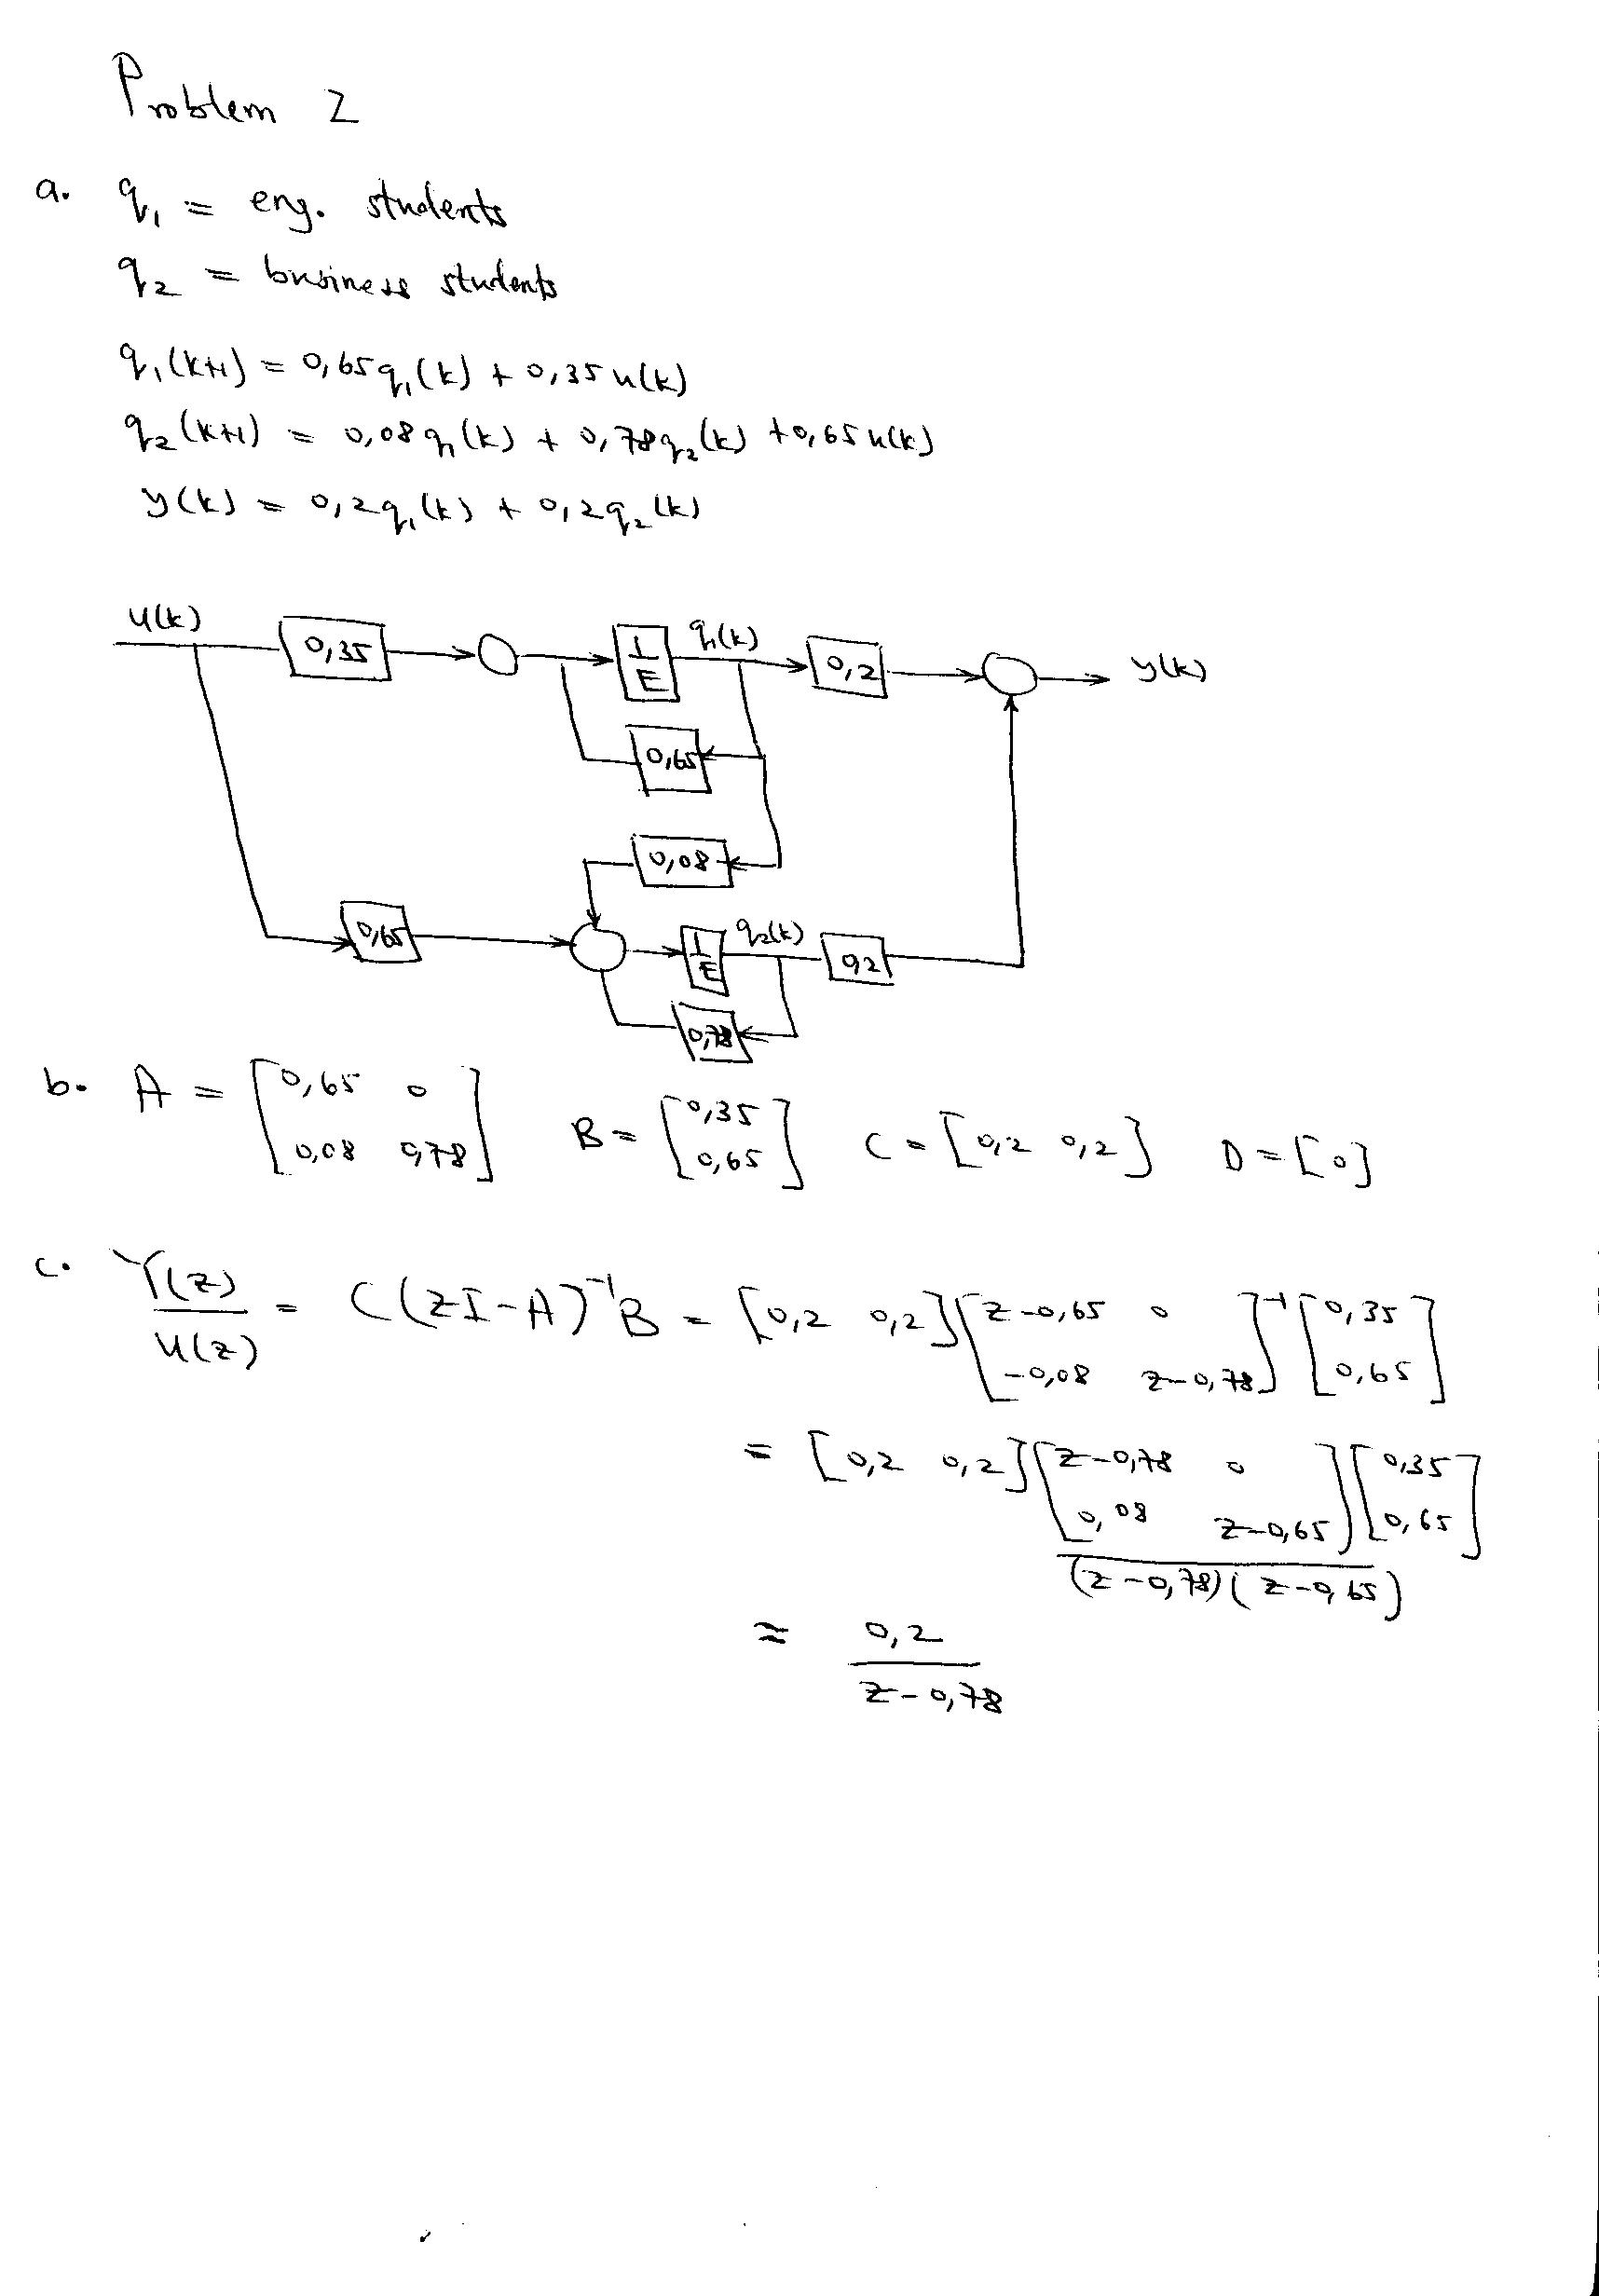 Problem 2
a. q₁ = eng. students
q₂ = business students
q₁(k+1) = 0,65q₁(k) + 0,35 u(k)
q₂(k+1) = 0,08 q₁(k) + 0,78q₂(k) + 0,65 u(k)
y(k) = 0,2q₁(k) + 0,2q₂(k)
u(k) 0,35 1/E q₁(k) 0,2 y(k)
0,65
0,08
0,65 1/E q₂(k) 0,2
0,78
b. A = [0,65 0; 0,08 0,78] B = [0,35; 0,65] C = [0,2 0,2] D = [0]
c. Y(z)/U(z) = C(zI-A)⁻¹B = [0,2 0,2][z-0,65 0; -0,08 z-0,78]⁻¹[0,35; 0,65]
= [0,2 0,2][z-0,78 0; 0,08 z-0,65][0,35; 0,65]
(z-0,78)(z-0,65)
≈ 0,2
z-0,78